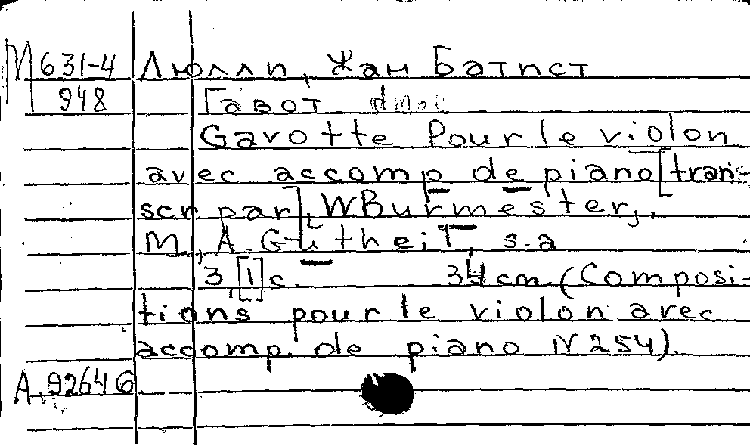 М 631-4 Люлли, Жан Батист
948 Гавот
Gavotte Pour le violon
avec accomp de piano [tran-
scr par], W Burmester,.
M., A. Gutheit, s.a
3,[1]с. 34 cm. (Composi-
tions pour le violon avec
accomp. de piano N 254).
А.92646